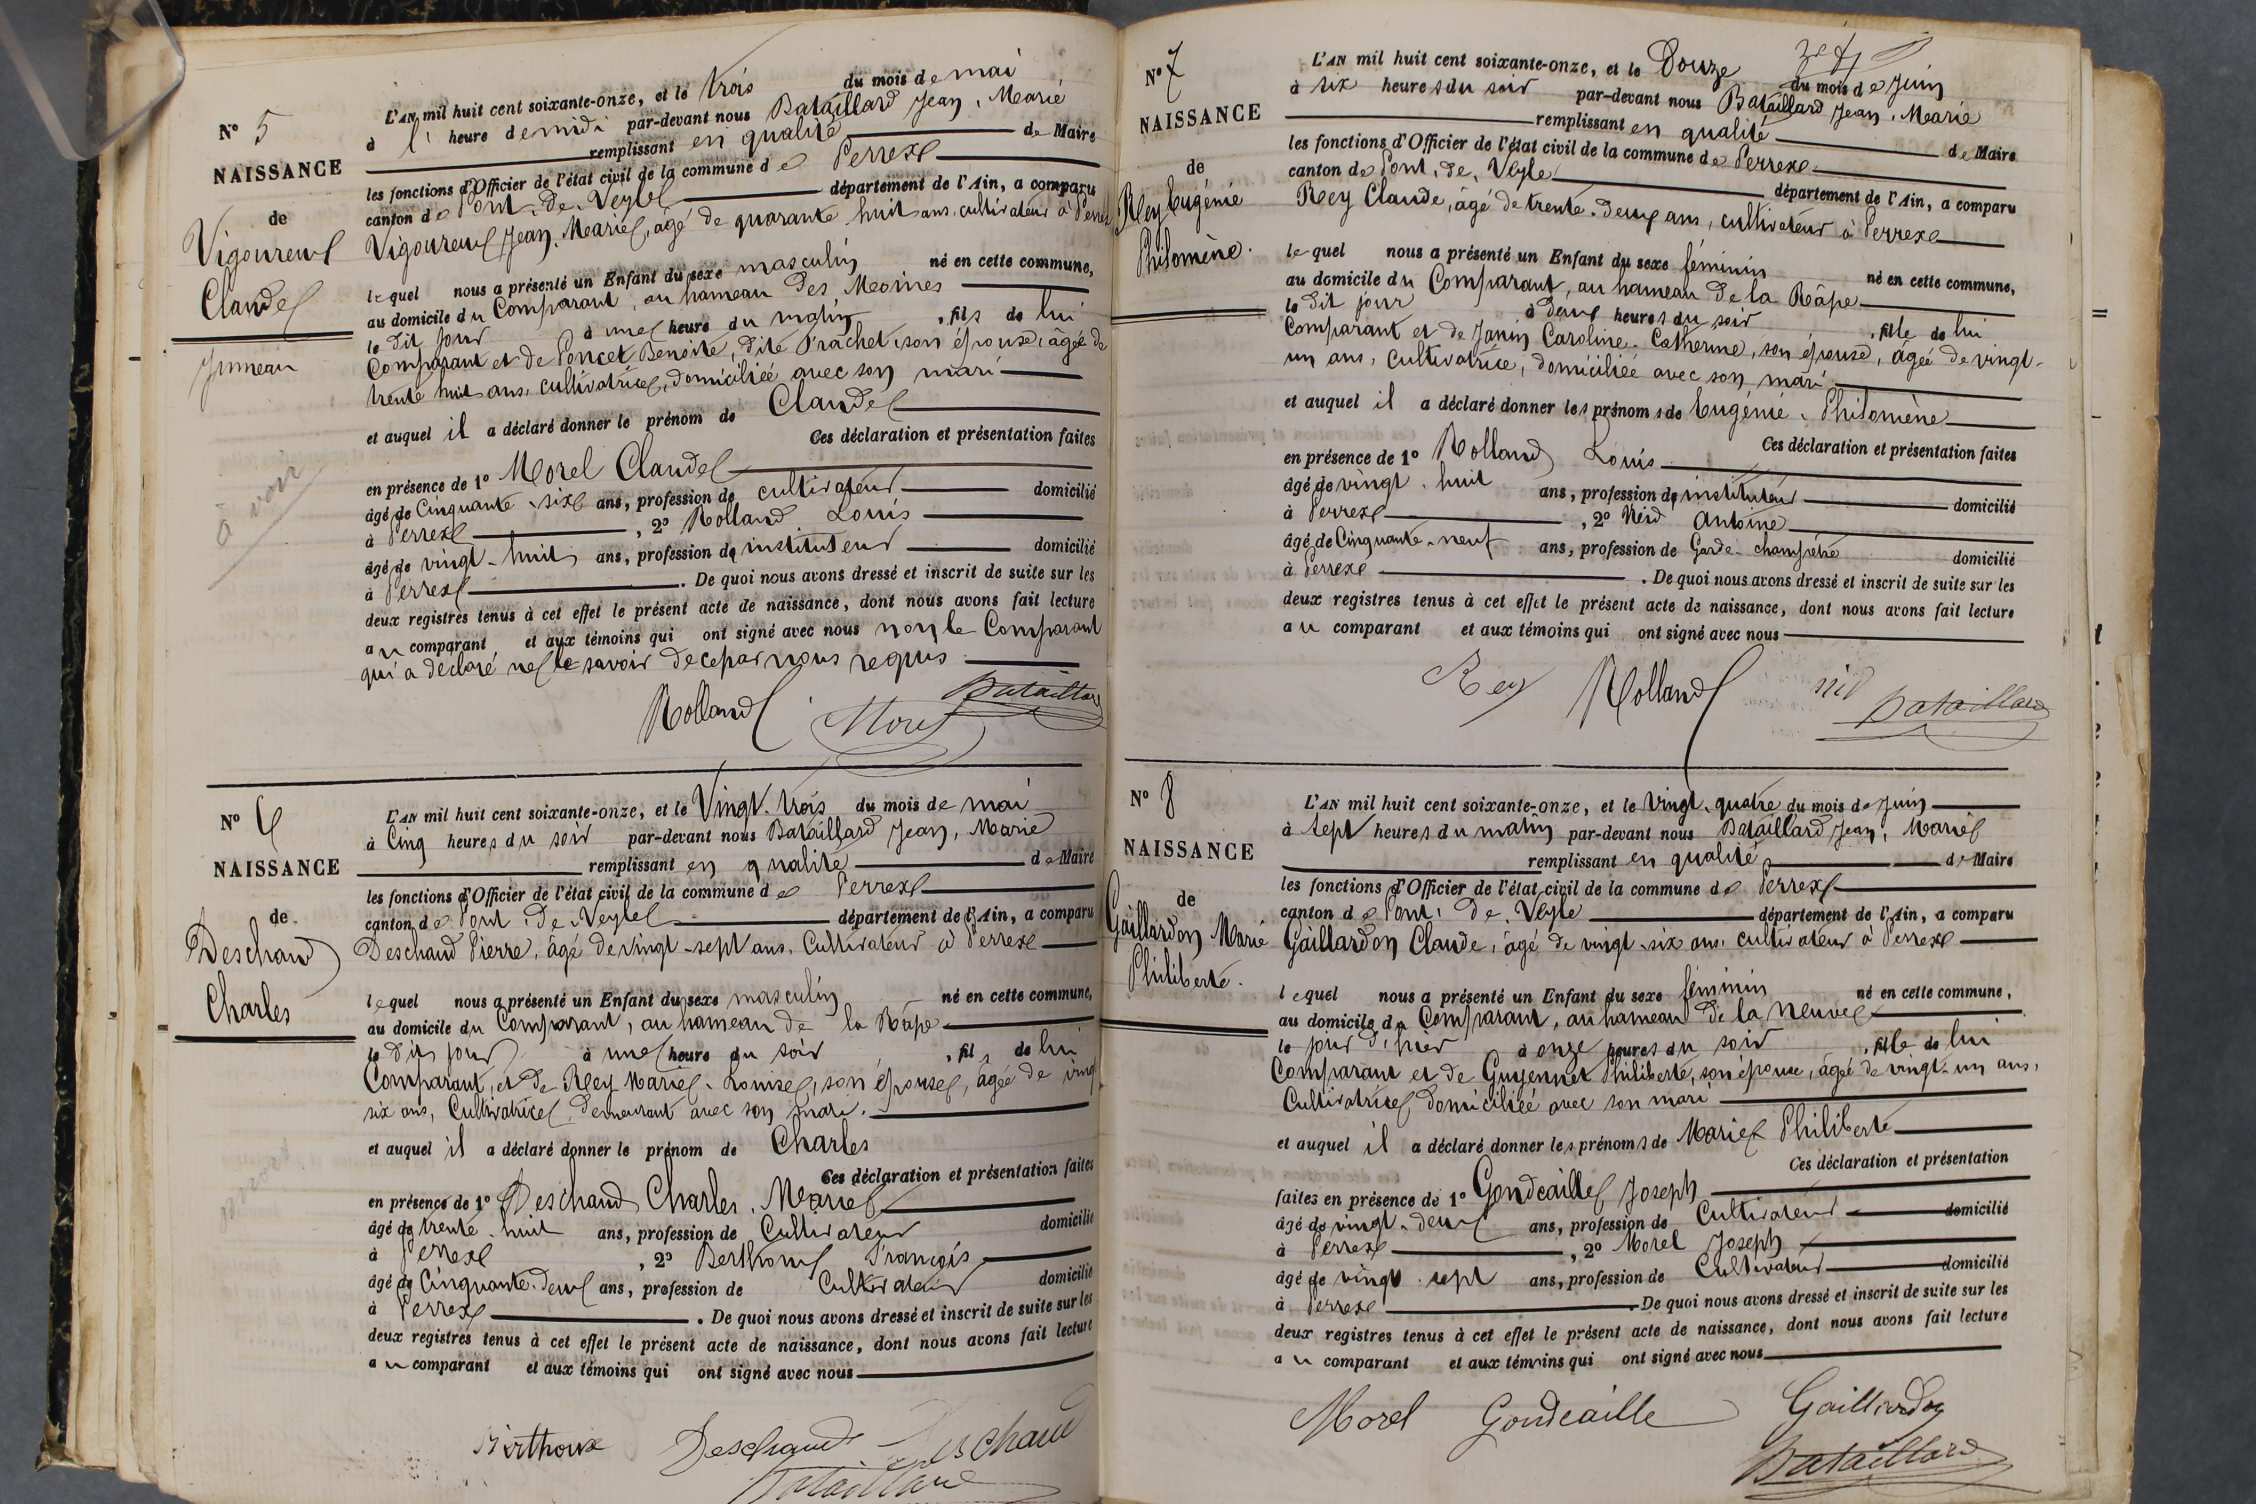 N° 5
NAISSANCE
de
Vigoureux
Claude
Jumeau
à voir
L'AN mil huit cent soixante-onze, et le trois du mois de mai
à l' heure de midi par-devant nous Bataillard Jean, Marie
remplissant en qualité de Maire
les fonctions d'Officier de l'état civil de la commune de Perrex
canton de Pont, de, Veyle département de l'Ain, a comparu
Vigoureux Jean, Marie, âgé de quarante huit ans, cultivateur à Perrex
lequel nous a présenté un Enfant du sexe masculin né en cette commune,
au domicile du Comparant, au hameau des Moines
le dit jour à une heure du matin, fils de lui
Comparant et de Poncet Benoite, dite Prachet, son épouse, âgée de
trente huit ans, cultivatrice, domiciliée avec son mari
et auquel il a déclaré donner le prénom de Claude
Ces déclaration et présentation faites
en présence de 1° Morel Claude
âgé de Cinquante-six ans, profession de cultivateur domicilié
à Perrex, 2° Rolland Louis
âgé de vingt-huit ans, profession de instituteur domicilié
à Perrex. De quoi nous avons dressé et inscrit de suite sur les
deux registres tenus à cet effet le présent acte de naissance, dont nous avons fait lecture
au comparant et aux témoins qui ont signé avec nous non le Comparant
qui a déclaré ne le savoir de ce par nous requis
Rolland Morel Bataillard
N° 6
NAISSANCE
de
Deschaud
Charles
L'AN mil huit cent soixante-onze, et le Vingt-trois du mois de mai
à Cinq heures du soir par-devant nous Bataillard Jean, Marie
remplissant en qualité de Maire
les fonctions d'Officier de l'état civil de la commune de Perrex
canton de Pont, de, Veyle département de l'Ain, a comparu
Deschaud Pierre, âgé de vingt-sept ans, Cultivateur à Perrex
lequel nous a présenté un Enfant du sexe masculin né en cette commune,
au domicile du Comparant, au hameau de la Râpe
le dit jour à une heure du soir, fils de lui
Comparant, et de Rey Marie-Louise, son épouse, âgée de vingt
six ans, Cultivatrice, demeurant avec son mari.
et auquel il a déclaré donner le prénom de Charles
Ces déclaration et présentation faites
en présence de 1° Deschaud Charles, Marie
âgé de trente-huit ans, profession de Cultivateur domicilié
à Perrex, 2° Berthoux François
âgé de Cinquante-deux ans, profession de Cultivateur domicilié
à Perrex. De quoi nous avons dressé et inscrit de suite sur les
deux registres tenus à cet effet le présent acte de naissance, dont nous avons fait lecture
au comparant et aux témoins qui ont signé avec nous
Berthoux Deschaud Deschaud
Bataillard
N° 7
NAISSANCE
de
Rey Eugénie
Philomène.
L'AN mil huit cent soixante-onze, et le Douze du mois de Juin
à six heures du soir par-devant nous Bataillard Jean, Marie
remplissant en qualité de Maire
les fonctions d'Officier de l'état civil de la commune de Perrex
canton de Pont, de, Veyle département de l'Ain, a comparu
Rey Claude, âgé de trente-deux ans, cultivateur à Perrex
lequel nous a présenté un Enfant du sexe féminin né en cette commune,
au domicile du Comparant, au hameau de la Râpe
le dit jour à deux heures du soir, fille de lui
Comparant et de Janin Caroline-Catherine, son épouse, âgée de vingt-
un ans, cultivatrice, domiciliée avec son mari
et auquel il a déclaré donner les prénoms de Eugénie-Philomène
Ces déclaration et présentation faites
en présence de 1° Rolland Louis
âgé de vingt-huit ans, profession de instituteur domicilié
à Perrex, 2° Nid Antoine
âgé de Cinquante-neuf ans, profession de Garde-champêtre domicilié
à Perrex. De quoi nous avons dressé et inscrit de suite sur les
deux registres tenus à cet effet le présent acte de naissance, dont nous avons fait lecture
au comparant et aux témoins qui ont signé avec nous
Rey Rolland nid Bataillard
N° 8
NAISSANCE
de
Gaillardon Marie
Philiberte.
L'AN mil huit cent soixante-onze, et le Vingt-quatre du mois de Juin
à sept heures du matin par-devant nous Bataillard Jean, Marie
remplissant en qualité de Maire
les fonctions d'Officier de l'état civil de la commune de Perrex
canton de Pont, de, Veyle département de l'Ain, a comparu
Gaillardon Claude, âgé de vingt-six ans, cultivateur à Perrex
lequel nous a présenté un Enfant du sexe féminin né en cette commune,
au domicile du Comparant, au hameau de la neuve
le jour d'hier à onze heures du soir, fille de lui
Comparant et de Guyennet Philiberte, son épouse, âgée de vingt-un ans,
Cultivatrice, domiciliée avec son mari
et auquel il a déclaré donner les prénoms de Marie Philiberte
Ces déclaration et présentation
faites en présence de 1° Gondcaille Joseph
âgé de vingt-deux ans, profession de Cultivateur domicilié
à Perrex, 2° Morel Joseph
âgé de vingt-sept ans, profession de Cultivateur domicilié
à Perrex. De quoi nous avons dressé et inscrit de suite sur les
deux registres tenus à cet effet le présent acte de naissance, dont nous avons fait lecture
au comparant et aux témoins qui ont signé avec nous
Morel Gondcaille Gaillardon
Bataillard